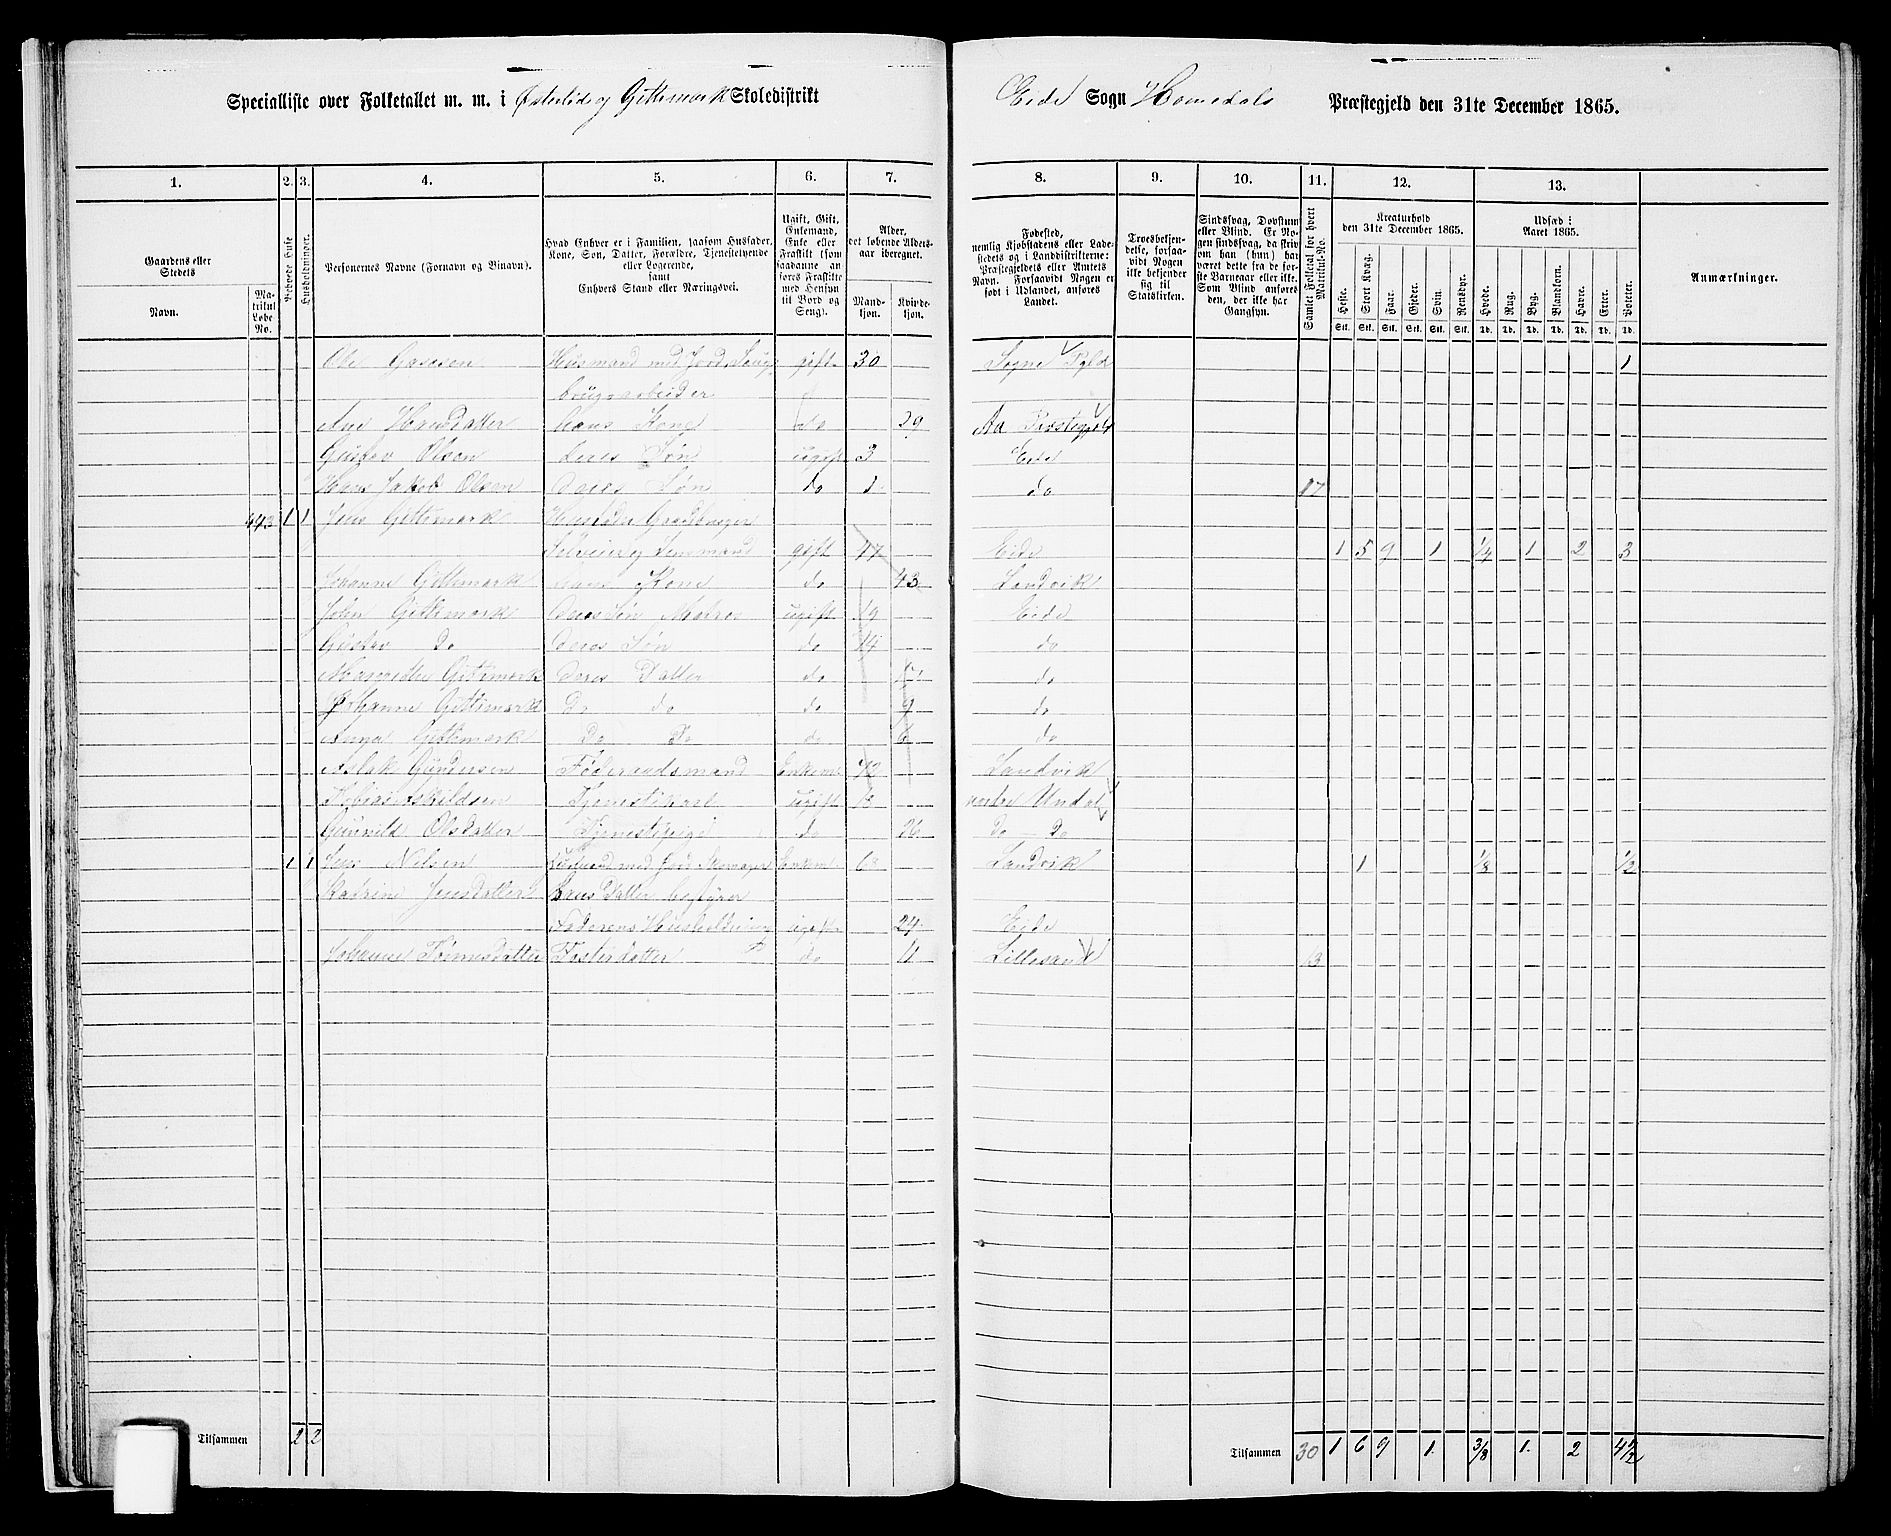 Specialliste over Folketallet m. m. i Østerlid og Gittmark Skoledistrikt
Eide Sogn Homedals Præstegjeld den 31te December 1865.
1. 2. 3. 4. 5. 6. 7. 8. 9. 10. 11. 12. 13.
Gaardens eller Stedets
Navn.
Matrikul Løbe No.
Beboede Huse
Husholdninger.
Personernes Navne (Fornavn og Binavn).
Hvad Enhver er i Familien, saasom Husfader,
Kone, Søn, Datter, Forældre, Tjenestetyende
eller Logerende,
samt
Enhvers Stand eller Næringsvei.
Ugift, Gift,
Enkemand,
Enke eller
Fraskilt (som
saadanne anføres Fraskilte
med Hensyn
til Bord og
Seng).
Alder,
det løbende Aldersaar iberegnet.
Mandkjøn. Kvindekjøn.
Fødested,
nemlig Kjøbstadens eller Ladestedets og i Landdistrikterne:
Præstegjeldets eller Amtets
Navn. Forsaavidt Nogen er
født i Udlandet, anføres
Landet.
Troesbekjendelse, forsaavidt Nogen
ikke bekjender
sig til
Statskirken.
Sindssvag, Døvstum
eller Blind. Er Nogen sindssvag, da skriv
om han (hun) har
været dette fra de første Barneaar eller ikke.
Som Blind anføres
den, der ikke har
Gangsyn.
Samlet Folketal for hvert Matrikul-No.
Kreaturhold
den 31te December 1865.
Heste. Stort Kvæg. Faar. Gjeder. Svin. Rensdyr.
Stk. Stk. Stk. Stk. Stk. Stk.
Udsæd i
Aaret 1865.
Hvede. Rug. Byg. Blandkorn. Havre. Erter. Poteter.
Td. Td. Td. Td. Td. Td. Td.
Anmærkninger.
Ole Gasesen Husmand med Jord gift 30 Sogne 1
brugsarbeider
Ane Hansdatter hans Kone do 29 Aa Præstegjeld
Gustav Olsen deres Søn ugift 3 Eide
Hans Jakob Olsen deres Søn do 1 do 17
443 1 1 Jens Gittmark Gaardbruger
Selveier og Lensmand gift 47 Eide 1 5 9 1 1/4 1 2 3
Johanne Gittmark hans Kone do 43 Landvik
John Gittmark deres Søn Matros ugift 19 Eide
Gustav Do deres Søn do 14 do
Gittmark deres Datter do 17 do
Johanne Gittmark Do do do 9 do
Anna Gittmark Do Do do 6 do
Aslak Gundersen Føderaadsmand Enkem. 72 Landvik
Tjenestekarl ugift 18 Undal
Gunvild Olsdatter Tjenestepige do 26 Do Do
1 1 Jens Nilsen Husmand med Jord Skomager Enkem. 68 Landvik 1 1/8 1/2
Katrine Jensdatter hans Datter bestyrer
Faderens Husholdning ugift 24 Eide
Johanne Tønnesdatter Fosterdatter do 11 Lillesand 13
Tilsammen 2 2
Tilsammen 30 1 6 9 1. 3/8 1. 2 4 1/2